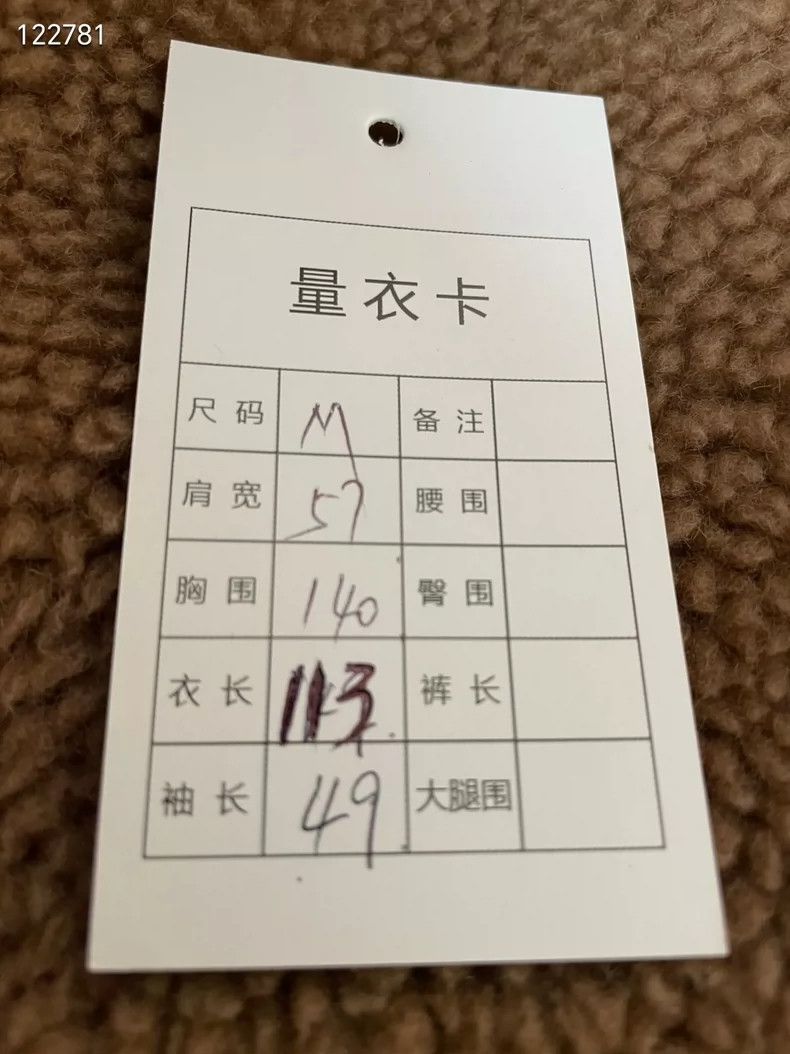 122781
量衣卡
尺码 M 备注
肩宽 57 腰围
胸围 140 臀围
衣长 113 裤长
袖长 49 大腿围